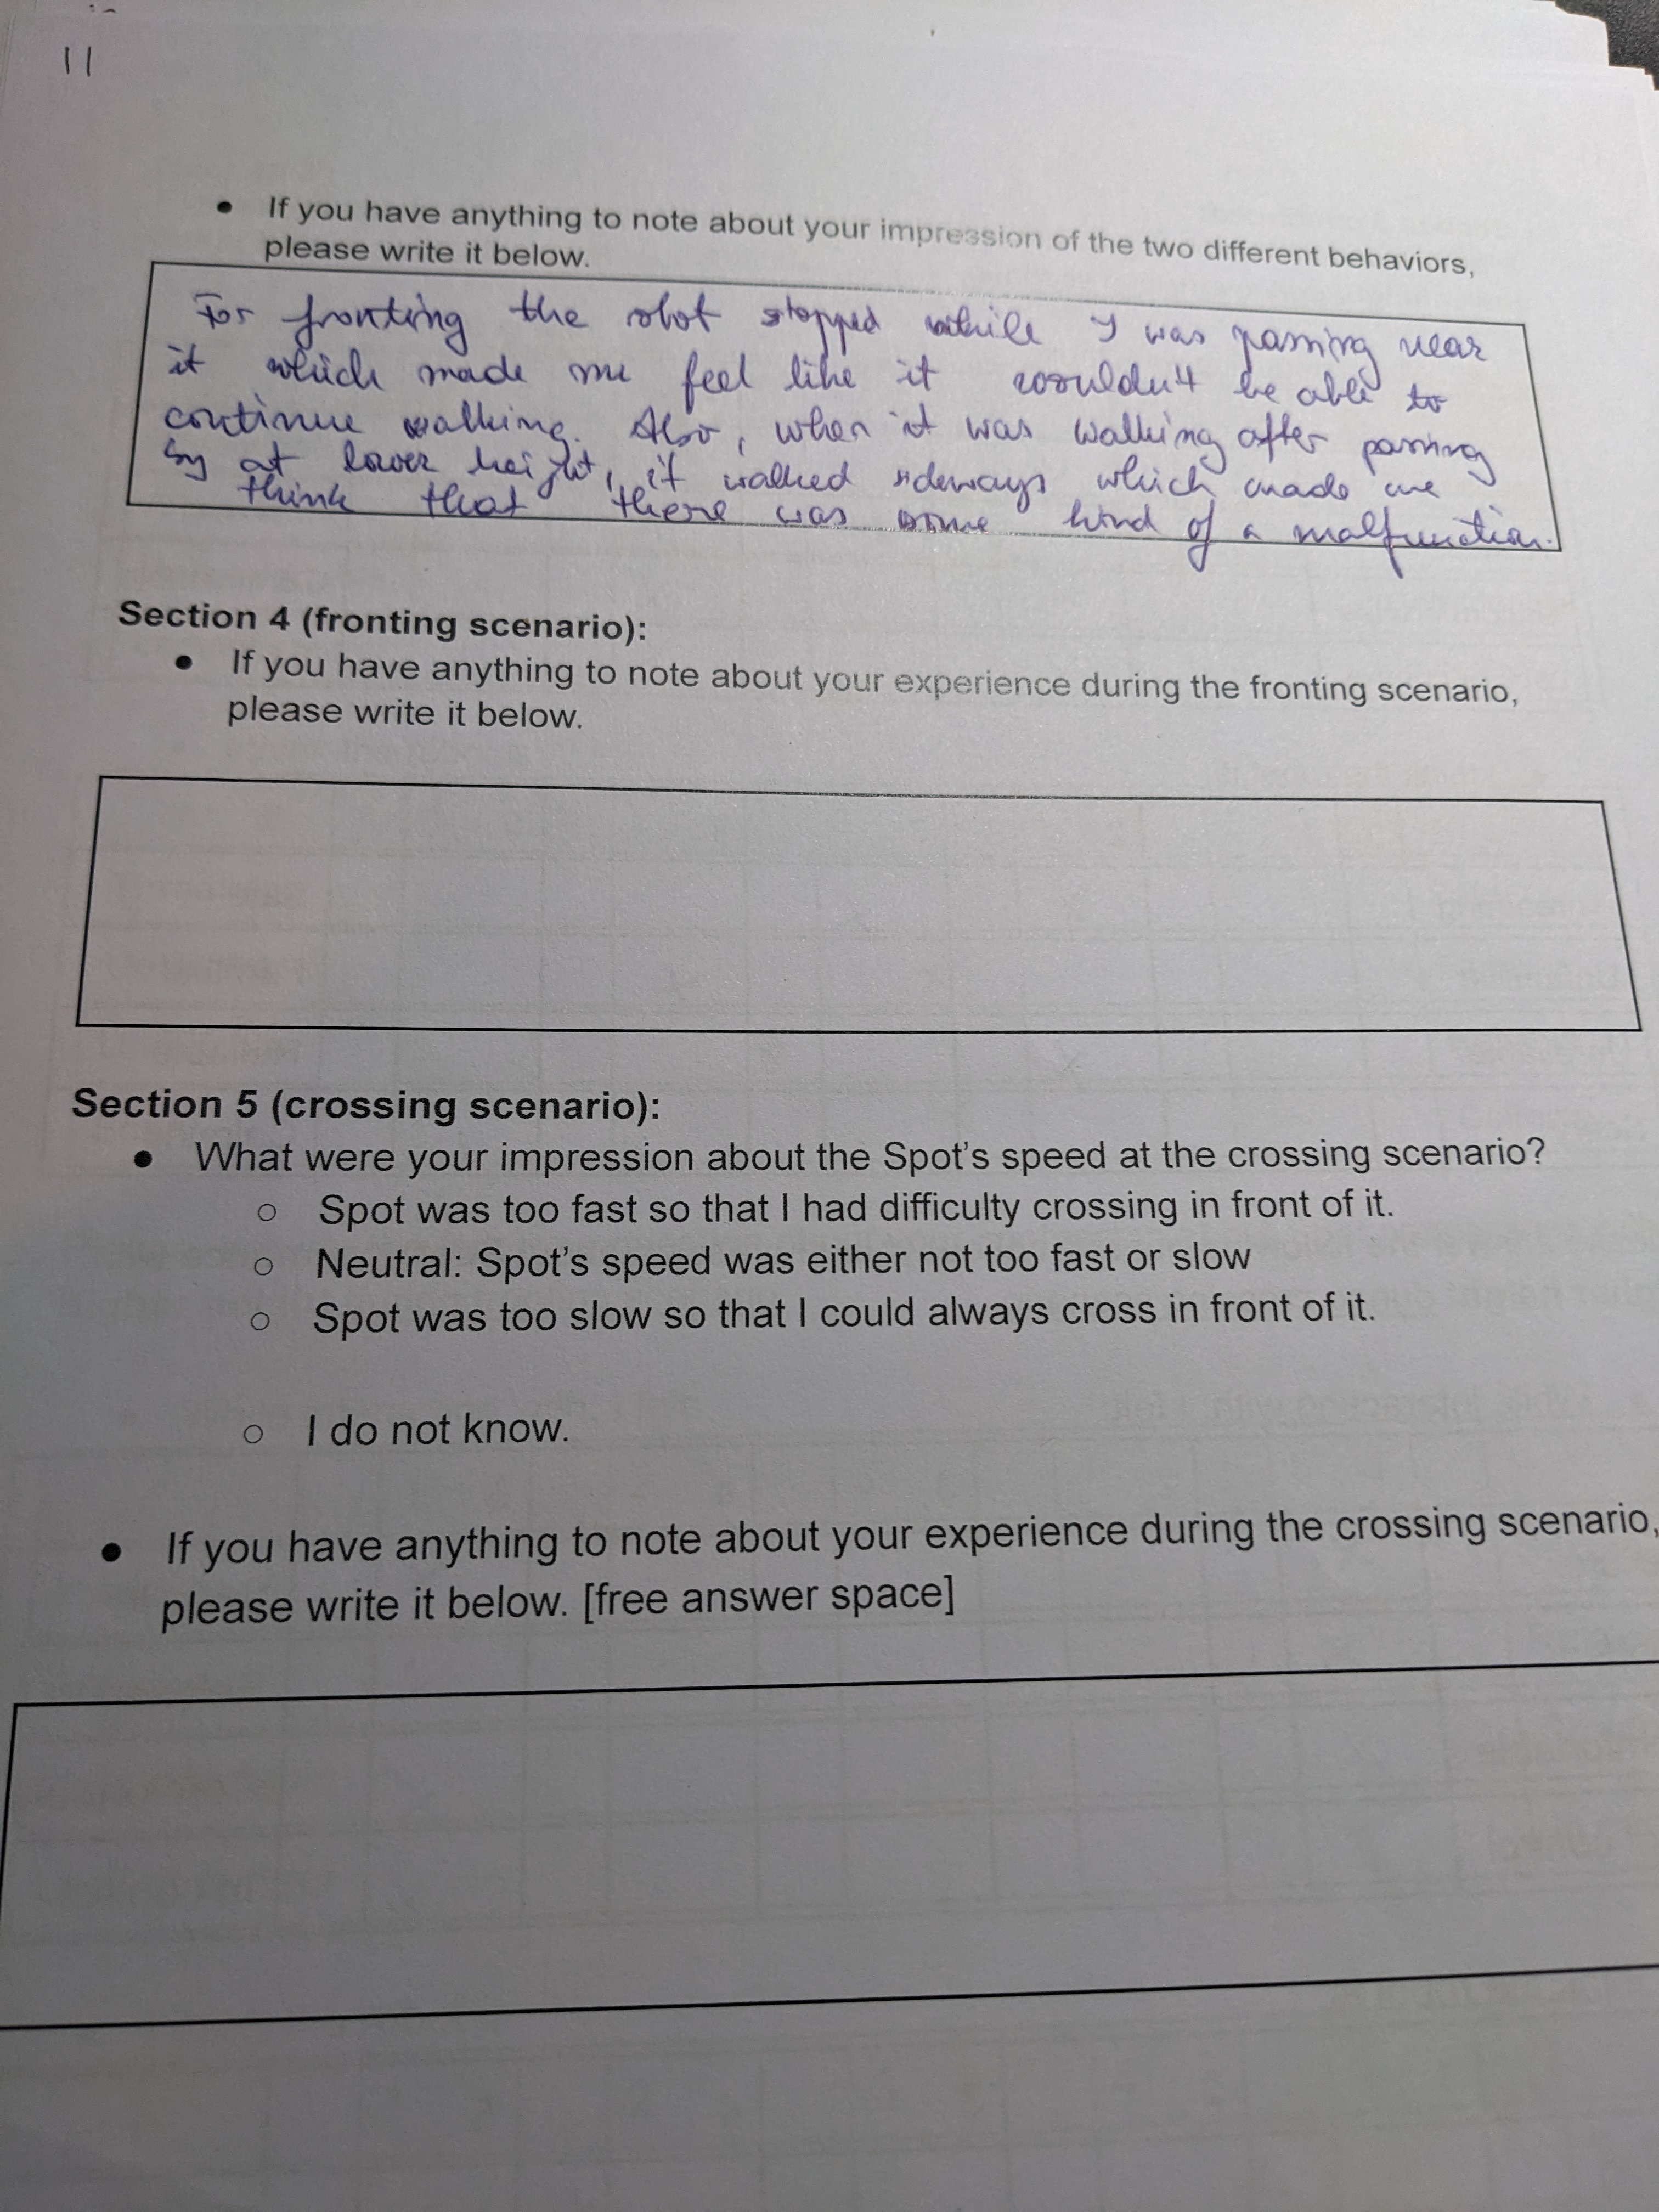 11
• If you have anything to note about your impression of the two different behaviors,
please write it below.
For fronting the robot stopped while I was passing near
it which made me feel like it wouldn't be able to
continue walking. Also, when it was walking after passing
by at lower height, it walked sideways which made me
think that there was some kind of a malfunction.
Section 4 (fronting scenario):
• If you have anything to note about your experience during the fronting scenario,
please write it below.
Section 5 (crossing scenario):
• What were your impression about the Spot's speed at the crossing scenario?
○ Spot was too fast so that I had difficulty crossing in front of it.
○ Neutral: Spot's speed was either not too fast or slow
○ Spot was too slow so that I could always cross in front of it.
○ I do not know.
• If you have anything to note about your experience during the crossing scenario,
please write it below. [free answer space]